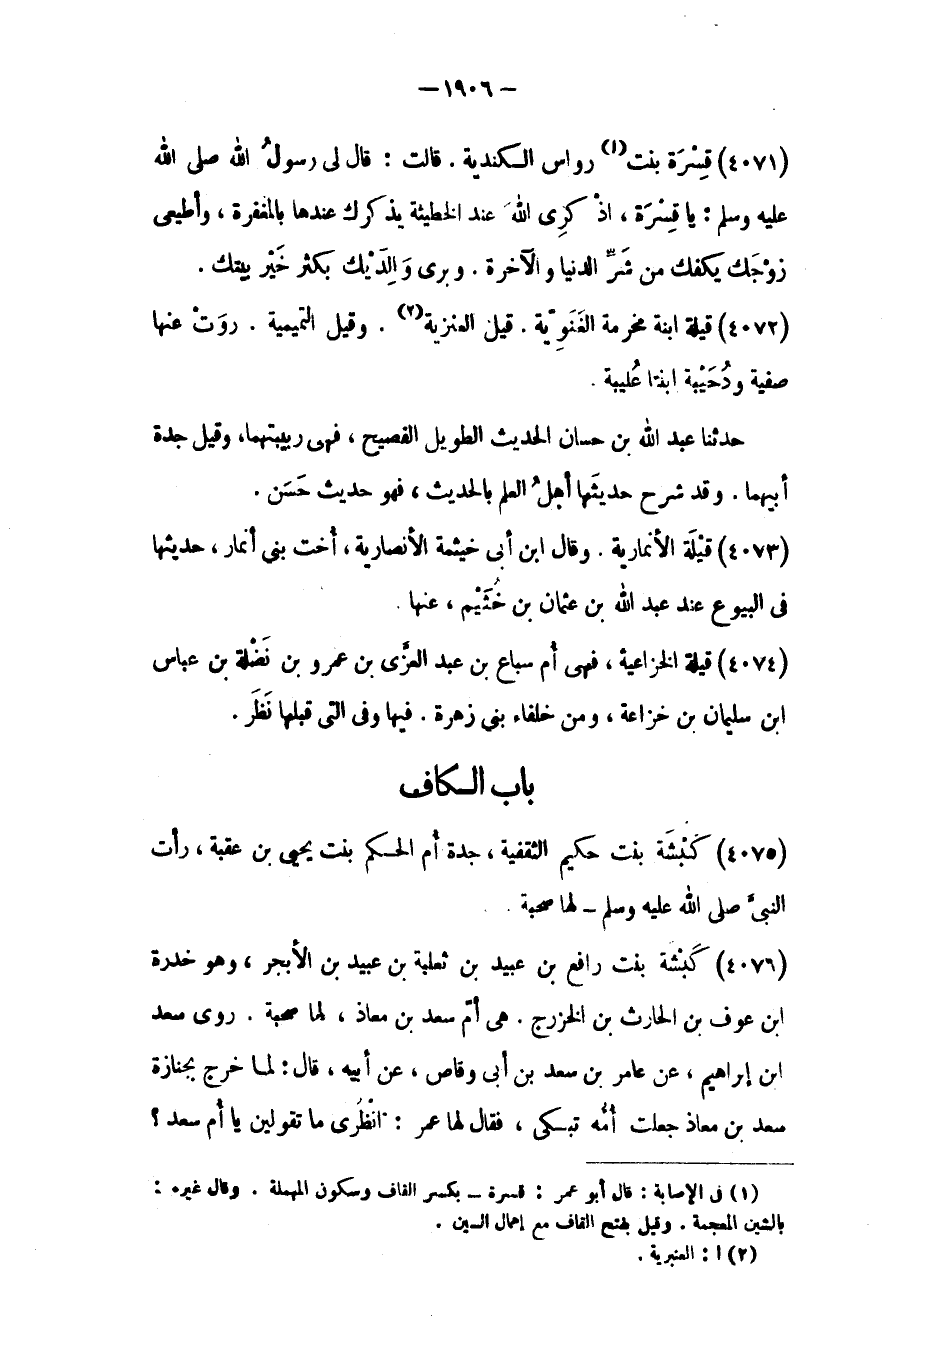 — ١٩٠٦ —
(٤٠٧١) قِسْرَة بنت(١) رواس الكندية . قالت : قال لى رسولُ الله صلى الله
عليه وسلم : يا قِسْرَة ، اذْ كرِى اللهَ عند الخطيئة يذكرك عندها بالمغفرة ، وأطيعى
زوْجَك يكفك من شَرِّ الدنيا والآخرة . وبرى وَالِدَيْك يكثر خَيْر بيتك .
(٤٠٧٢) قيلة ابنة مخرمة الغَنَوِيّة . قيل العنزية(٢) . وقيل التميمية . روَتْ عنها
صفية ودُحَيْبة ابنتا عُليبة .
حدثنا عبد الله بن حسان الحديث الطويل الفصيح ، فهى ربيبتهما، وقيل جدة
أبيهما . وقد شرح حديثَها أهلُ العلم بالحديث ، فهو حديث حَسَن .
(٤٠٧٣) قيْلَة الأنمارية . وقال ابن أبى خيثمة الأنصارية ، أخت بنى أنمار ، حديثها
فى البيوع عند عبد الله بن عثمان بن خُثَيْم ، عنها .
(٤٠٧٤) قيلة الخزاعية ، فهى أم سباع بن عبد العزَّى بن عمرو بن نَضْلة بن عباس
ابن سليمان بن خزاعة ، ومن خلفاء بنى زهرة . فيها وفى التى قبلها نَظَر .
باب الكاف
(٤٠٧٥) كَبْشَة بنت حكيم الثقفية ، جدة أم الحكم بنت يحيى بن عقبة ، رأت
النبىَّ صلى الله عليه وسلم – لها صحبة .
(٤٠٧٦) كَبْشَة بنت رافع بن عبيد بن ثعلبة بن عبيد بن الأبجر ، وهو خدرة
ابن عوف بن الحارث بن الخزرج . هى أمّ سعد بن معاذ ، لها صحبة . روى سعد
ابن إبراهيم ، عن عامر بن سعد بن أبى وقاص ، عن أبيه ، قال : لما خرج بجنازة
سعد بن معاذ جعلت أُمُّه تبكى ، فقال لها عمر : انْظُرى ما تقولين يا أم سعد ؟
(١) فى الإصابة : قال أبو عمر : قسرة – بكسر القاف وسكون المهملة . وقال غيره :
بالشين المعجمة . وقيل بفتح القاف مع إهمال السين .
(٢) ا : العنبرية .